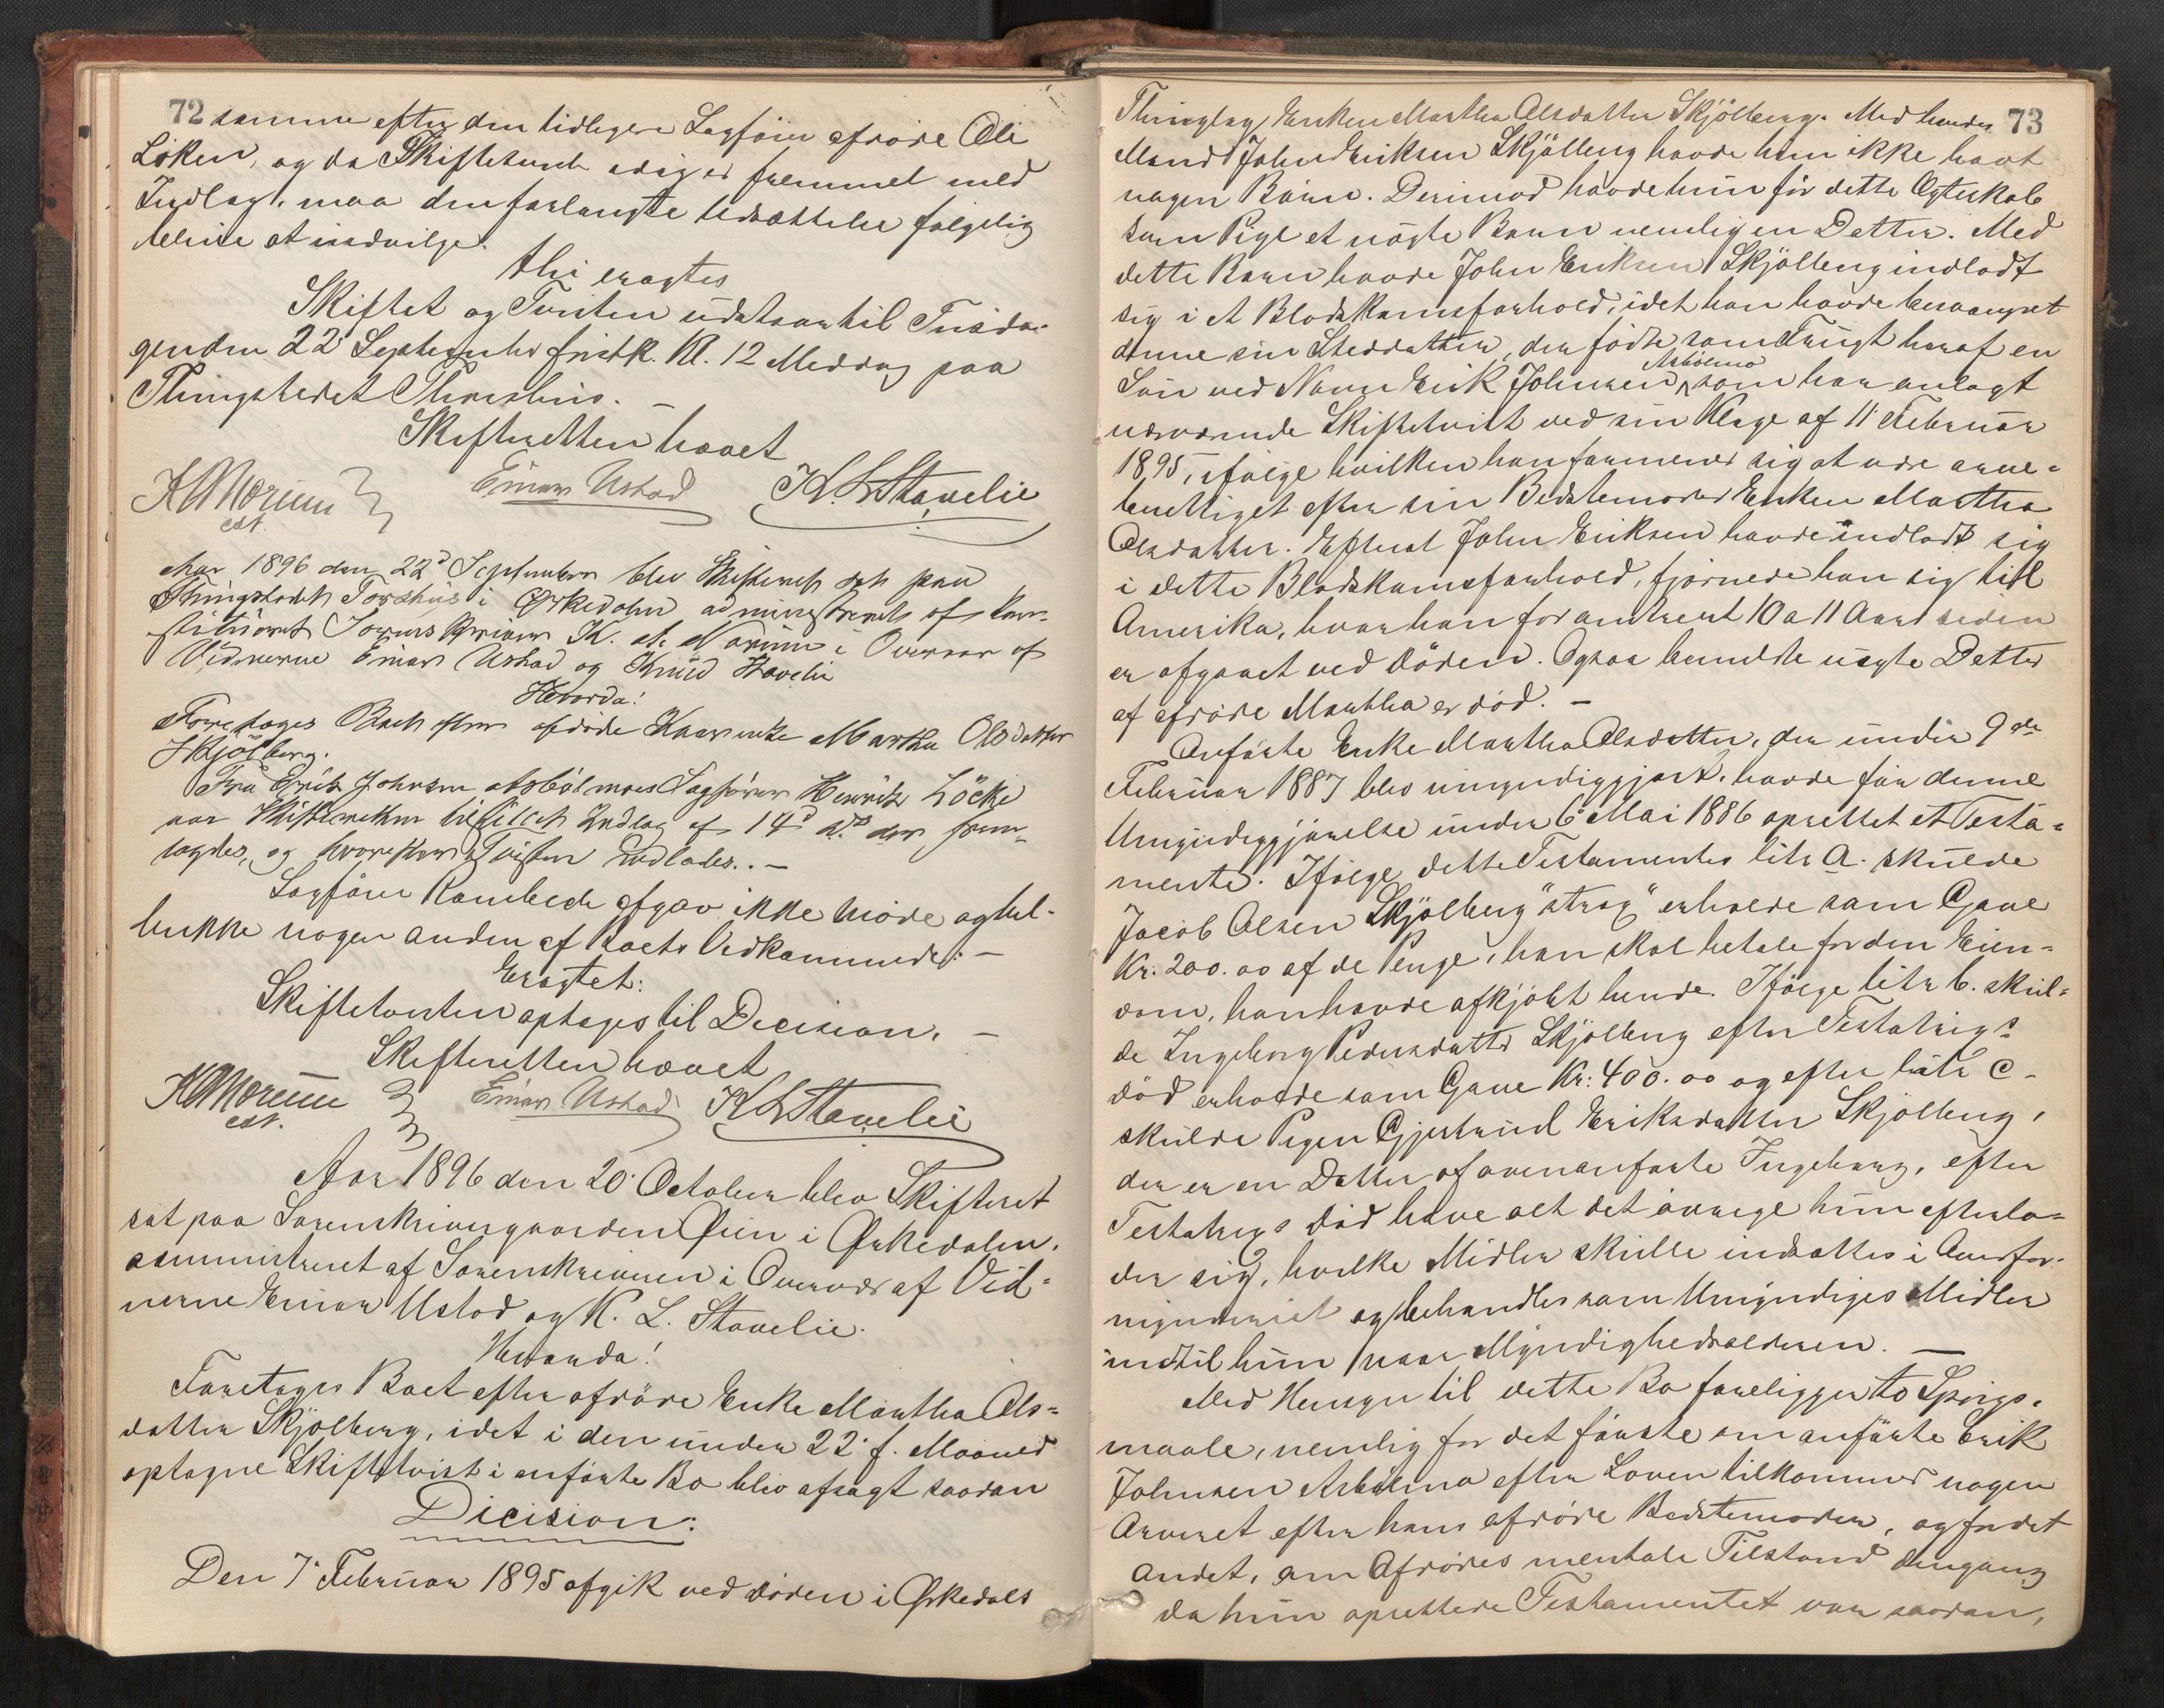 72
samme efter den tidligere Sagfører afdøde Ole
Löken, og da Skifteretten er fremmet med
Indlæg, maa den forlangte Udsættelse følgelig
blive at indvilge.
thi eragtes
Skiftet og Tvisten udsættes til Tirsda-
gen den 22 September førstk. Kl. 12 Middag paa
Thingstedet Thorshus. –
Skifteretten hævet
K A Morium
cst.
Einar Ustad
K. L. Stavelie
Aar 1896 den 22d September blev Skifteret sat paa
Thingstedet Torshus i Ørkedalen administreret af kon-
stitueret Sorenskriver K. A. Morium i Overvær af
Vidnerne Einar Ustad og Knud Stavelie
Hvorda!
Foretoges Boet efter afdøde Kaarenke Martha Olsdatter
Skjölberg.
Fra Erik Johnsen Asbölmoes Sagfører Henrik Löcke
var Skifteretten tilstillet Indlæg af 14d ds. der frem-
lagdes, og hvorefter Tvisten indlades. –
Sagfører Rambech afgav ikke Møde og hel-
ler ikke nogen anden af Boets Vedkommende. –
Eragtet:
Skiftetvisten optages til Decision. –
Skifteretten hævet
K A Morium
cst.
Einar Ustad
K L Stavelie
Aar 1896 den 20. October blev Skifteret
sat paa Sorenskrivergaarden Øien i Ørkedalen,
administreret af Sorenskriveren i Overvær af Vid-
nerne Einar Ustad og K. L. Stavelie.
Hvorda!
Foretoges Boet efter afdøde Enke Martha Ols-
datter Skjölberg, idet i den under 22. f. Maaned
optagne Skiftetvist i anførte Bo blev afsagt saadan
Dicision:
Den 7. Februar 1895 afgik ved døden i Ørkedals
73
Thinglag Enken Martha Olsdatter Skjölberg. Med hendes
Mand John Eriksen Skjölberg havde hun ikke havt
nogen Børn. Derimod havde hun før dette Ægteskab
som Pige et uægte Barn nemlig en Datter. Med
dette Barn havde John Eriksen Skjölberg indladt
sig i et Blodskamsforhold, idet han havde besvangret
denne sin Steddatter, der fødte som Frugt heraf en
Søn ved Navn Erik Johnsen Asbölmo, som har anlagt
nærværende Skiftetvist ved sin Klage af 11 Februar
1895, ifølge hvilken han formener sig at være arve-
berettiget efter sin Bedstemoder Enken Martha
Olsdatter. Efterat John Eriksen havde indladt sig
i dette Blodskamsforhold, fjernede han sig til
Amerika, hvor han for omtrent 10 a 11 Aar siden
er afgaaet ved døden. Ogsaa bemeldte uægte Datter
af afdøde Martha er død. –
Anførte Enke Martha Olsdatter, der under 9de
Februar 1887 blev umyndiggjort, havde før denne
Umyndiggjørelse under 6 Mai 1886 oprettet et Testa-
mente. Ifølge dette Testamentes litr a. skulde
Jacob Olsen Skjölberg "strax" erholde som Gave
Kr. 200.00 af de Penge, han skal betale for den Eien-
dom, han havde afkjøbt hende. Ifølge litr b. skul-
de Ingeborg Pedersdatter Skjölberg efter Testatrix's
død erholde som Gave Kr. 400.00 og efter litr c.
skulde Pigen Gjertrud Eriksdatter Skjölberg,
der er en Datter af ovenanførte Ingeborg, efter
Testatrix's død have alt det øvrige hun efterla-
der sig, hvilke Midler skulle indsættes i Overfor-
mynderiet og behandles som Umyndiges Midler
indtil hun naar Myndighedsalderen. –
Med Hensyn til dette Bo foreligger to Spørgs-
maale, nemlig for det første om anførte Erik
Johnsen Asbölmo efter Loven tilkommer nogen
Arveret efter hans afdøde Bedstemoder, og for det
andet, om Afdødes mentale Tilstand dengang
da hun oprettede Testamentet var saadan,